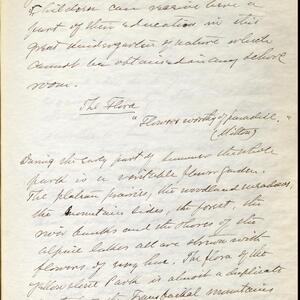 & Children can receive here a
part of their education in this
great kindergarten of nature which
cannot be obtained in any school
room.
The Flora
"Flowers worthy of paradise."
(Milton)
During the early part of summer the whole
park is a veritable flower garden.
The plateau prairies, the woodland meadows,
the mountain sides, the forest, the
river banks and the shores of the
alpine lakes all are strewn with
flowers of every hue. The flora of the
Yellowstone Park is almost a duplicate
mountains